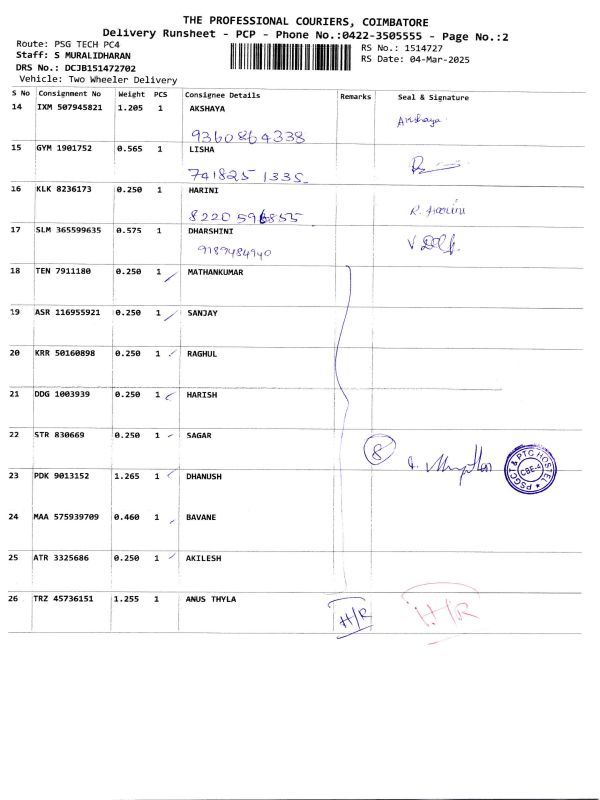 THE PROFESSIONAL COURIERS, COIMBATORE
Delivery Runsheet - PCP - Phone No.:0422-3505555 - Page No.:2
Route: PSG TECH PC4
Staff: S MURALIDHARAN
DRS No.: DCJB151472702
Vehicle: Two Wheeler Delivery
RS No.: 1514727
RS Date: 04-Mar-2025
S No Consignment No Weight PCS Consignee Details Remarks Seal & Signature
14 IXM 507945821 1.205 1 AKSHAYA Akshaya
9360864338
15 GYM 1901752 0.565 1 LISHA
741825 1335
16 KLK 8236173 0.250 1 HARINI R. Harini
8220596855
17 SLM 365599635 0.575 1 DHARSHINI
9189484940
18 TEN 7911180 0.250 1 MATHANKUMAR
19 ASR 116955921 0.250 1 SANJAY
20 KRR 50160898 0.250 1 RAGHUL
21 DDG 1003939 0.250 1 HARISH
22 STR 830669 0.250 1 SAGAR
8
PSGCT & PTC HOSTEL
CBE-4
23 PDK 9013152 1.265 1 DHANUSH
24 MAA 575939709 0.460 1 BAVANE
25 ATR 3325686 0.250 1 AKILESH
26 TRZ 45736151 1.255 1 ANUS THYLA H/R H/R